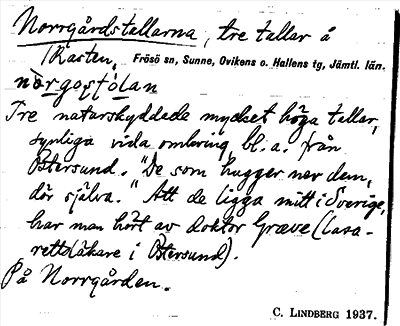 Norrgårdstallarna, tre tallar å
Kasten. Frösö sn, Sunne, Ovikens o. Hallens tg, Jämtl. län.
Tre naturskyddade mycket höga tallar,
synliga vida omkring bl. a. från
Östersund. "De som hugger ner dem,
dör själva." Att de ligga mitt i Sverige,
har man hört av doktor Græve (lasa-
rettsläkare i Östersund).
På Norrgården.
C. LINDBERG 1937.